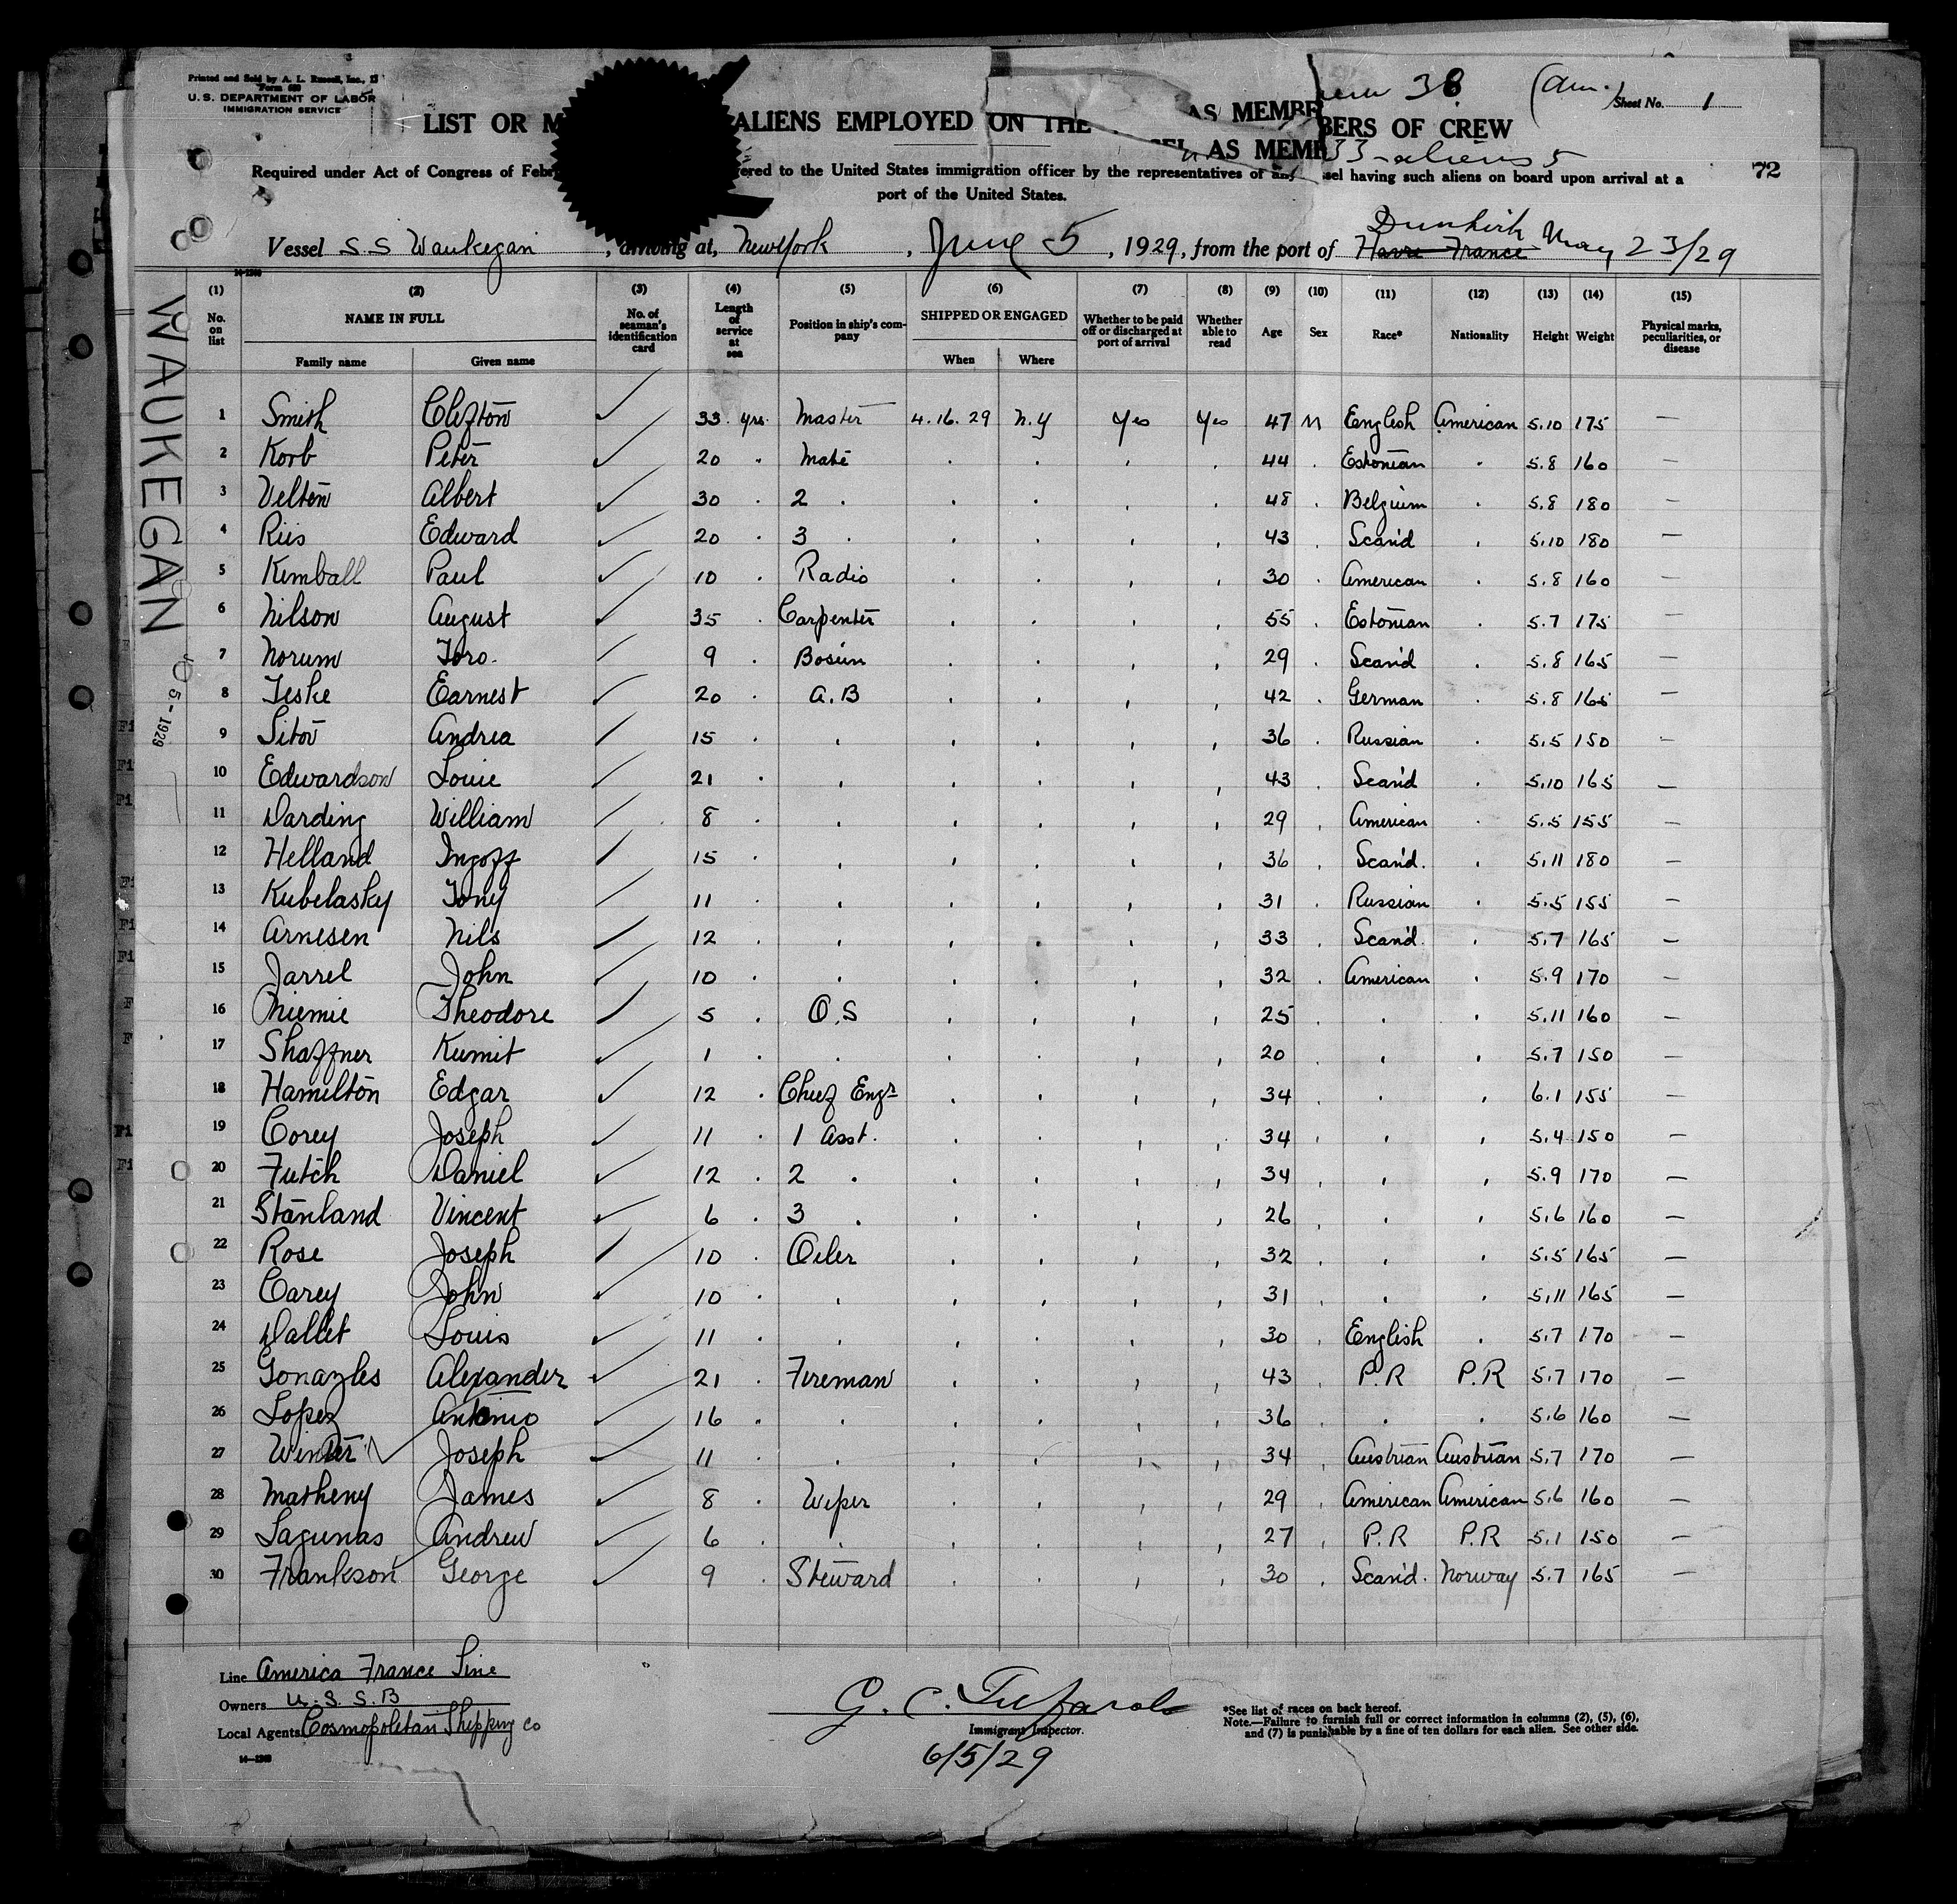 Printed and Sold by A. L. Russell, Inc.,
Form 680
U. S. DEPARTMENT OF LABOR
IMMIGRATION SERVICE
38 (Am.) Sheet No. 1
AS MEMBE
LIST OR M ALIENS EMPLOYED ON THE BERS OF CREW
SEL AS MEMB 33 - aliens 5
Required under Act of Congress of Febr ered to the United States immigration officer by the representatives of any ssel having such aliens on board upon arrival at a 72
port of the United States.
Dunkirk
Vessel S.S Waukegan, arriving at, New York, June 5, 1929, from the port of Havre France May 23/29
14-1240
(1) (2) (3) (4) (5) (6) (7) (8) (9) (10) (11) (12) (13) (14) (15)
No. on list NAME IN FULL No. of seaman's identification card Length of service at sea Position in ship's company SHIPPED OR ENGAGED Whether to be paid off or discharged at port of arrival Whether able to read Age Sex Race* Nationality Height Weight Physical marks, peculiarities, or disease
Family name Given name When Where
WAUKEGAN
5 - 1929
1 Smith Clifton 33 yrs. Master 4.16.29 N.Y Yes Yes 47 M English American 5.10 175 —
2 Korb Peter 20 " Mate " " " " 44 " Estonian " 5.8 160 —
3 Velton Albert 30 " 2 " " " " " 48 " Belgium " 5.8 180 —
4 Riis Edward 20 " 3 " " " " " 43 " Scan'd " 5.10 180 —
5 Kimball Paul 10 " Radio " " " " 30 " American " 5.8 160 —
6 Nilson August 35 " Carpenter " " " " 55 " Estonian " 5.7 175 —
7 Norum Toro. 9 " Bosun " " " " 29 " Scan'd " 5.8 165 —
8 Teske Earnest 20 " A.B " " " " 42 " German " 5.8 165 —
9 Sitov Andrea 15 " " " " " " 36 " Russian " 5.5 150 —
10 Edwardson Louie 21 " " " " " " 43 " Scan'd " 5.10 165 —
11 Darding William 8 " " " " " " 29 " American " 5.5 155 —
12 Helland Ingoff 15 " " " " " " 36 " Scan'd. " 5.11 180 —
13 Kubelasky Tony 11 " " " " " " 31 " Russian " 5.5 155 —
14 Arnesen Nils 12 " " " " " " 33 " Scan'd. " 5.7 165 —
15 Jarrel John 10 " " " " " " 32 " American " 5.9 170 —
16 Miemie Theodore 5 " O.S " " " " 25 " " " 5.11 160 —
17 Shaffner Kumit 1 " " " " " " 20 " " " 5.7 150 —
18 Hamilton Edgar 12 " Chief Engr " " " " 34 " " " 6.1 155 —
19 Corey Joseph 11 " 1 Asst. " " " " 34 " " " 5.4 150 —
20 Futch Daniel 12 " 2 " " " " " 34 " " " 5.9 170 —
21 Stanland Vincent 6 " 3 " " " " " 26 " " " 5.6 160 —
22 Rose Joseph 10 " Oiler " " " " 32 " " " 5.5 165 —
23 Carey John 10 " " " " " " 31 " " " 5.11 165 —
24 Dallet Louis 11 " " " " " " 30 " English " 5.7 170 —
25 Gonazles Alexander 21 " Fireman " " " " 43 " P.R P.R 5.7 170 —
26 Lopez Antonio 16 " " " " " " 36 " " " 5.6 160 —
27 Winter Joseph 11 " " " " " " 34 " Austrian Austrian 5.7 170 —
28 Matheny James 8 " Wiper " " " " 29 " American American 5.6 160 —
29 Lagunas Andrew 6 " " " " " " 27 " P.R P.R 5.1 150 —
30 Frankson George 9 " Steward " " " " 30 " Scan'd. Norway 5.7 165 —
Line America France Line
Owners U.S.S.B
Local Agents Cosmopolitan Shipping Co
14-1240
G. C.
Immigrant Inspector.
6/5/29
*See list of races on back hereof.
Note.—Failure to furnish full or correct information in columns (2), (5), (6),
and (7) is punishable by a fine of ten dollars for each alien. See other side.